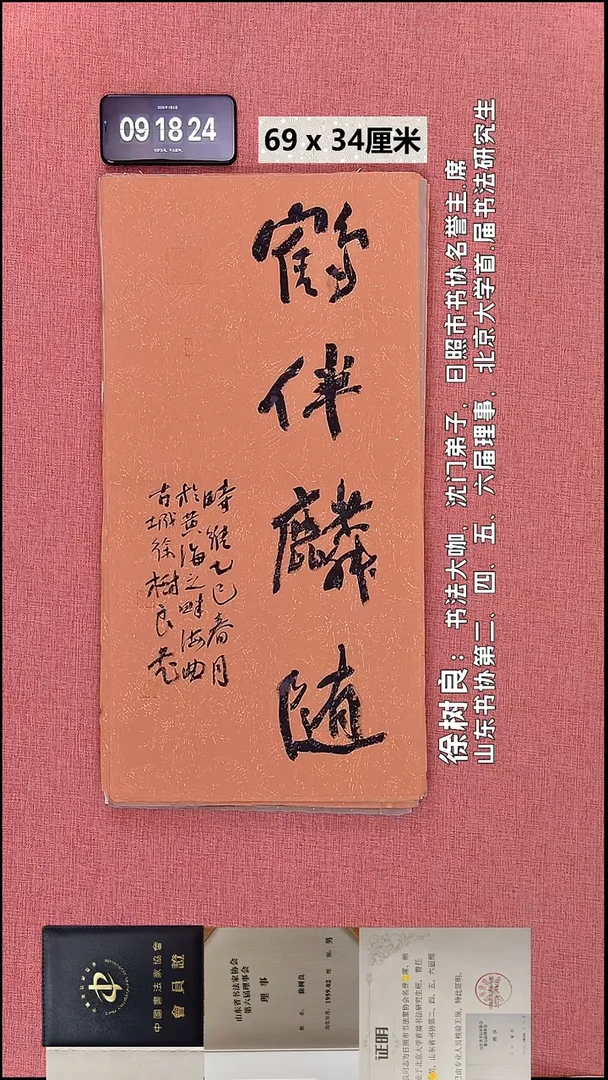 09 18 24
69 x 34厘米
鶴伴麟随
時維乙巳春月
於黄海之畔海曲
古城徐樹良書
徐树良：书法大咖，沈门弟子，日照市书协名誉主席
山东书协第二、四、五、六届理事，北京大学首届书法研究生
中國書法家協會
會員證
山东省书法家协会
第六届理事会
理事
姓名：徐树良
性别：男
出生年月：1959.02
证明